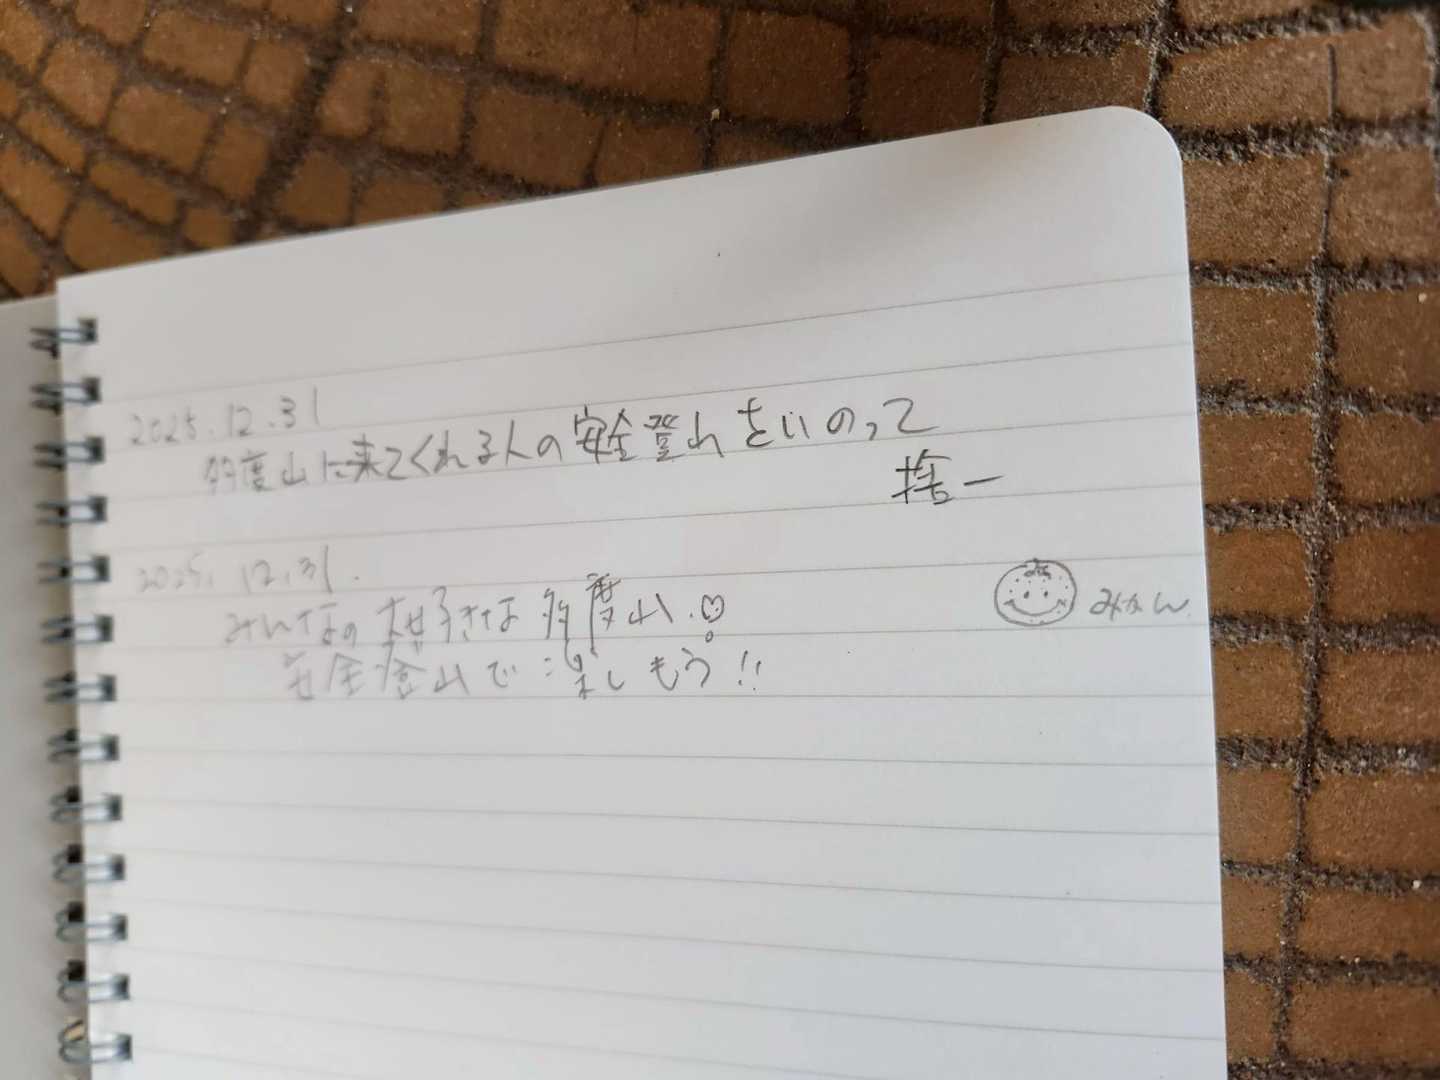 2025.12.31
多度山に来てくれる人の安全登山をいのって
捨一
2025.12.31.
みんなの大好きな多度山.♡
安全登山で楽しもう!!
みかん